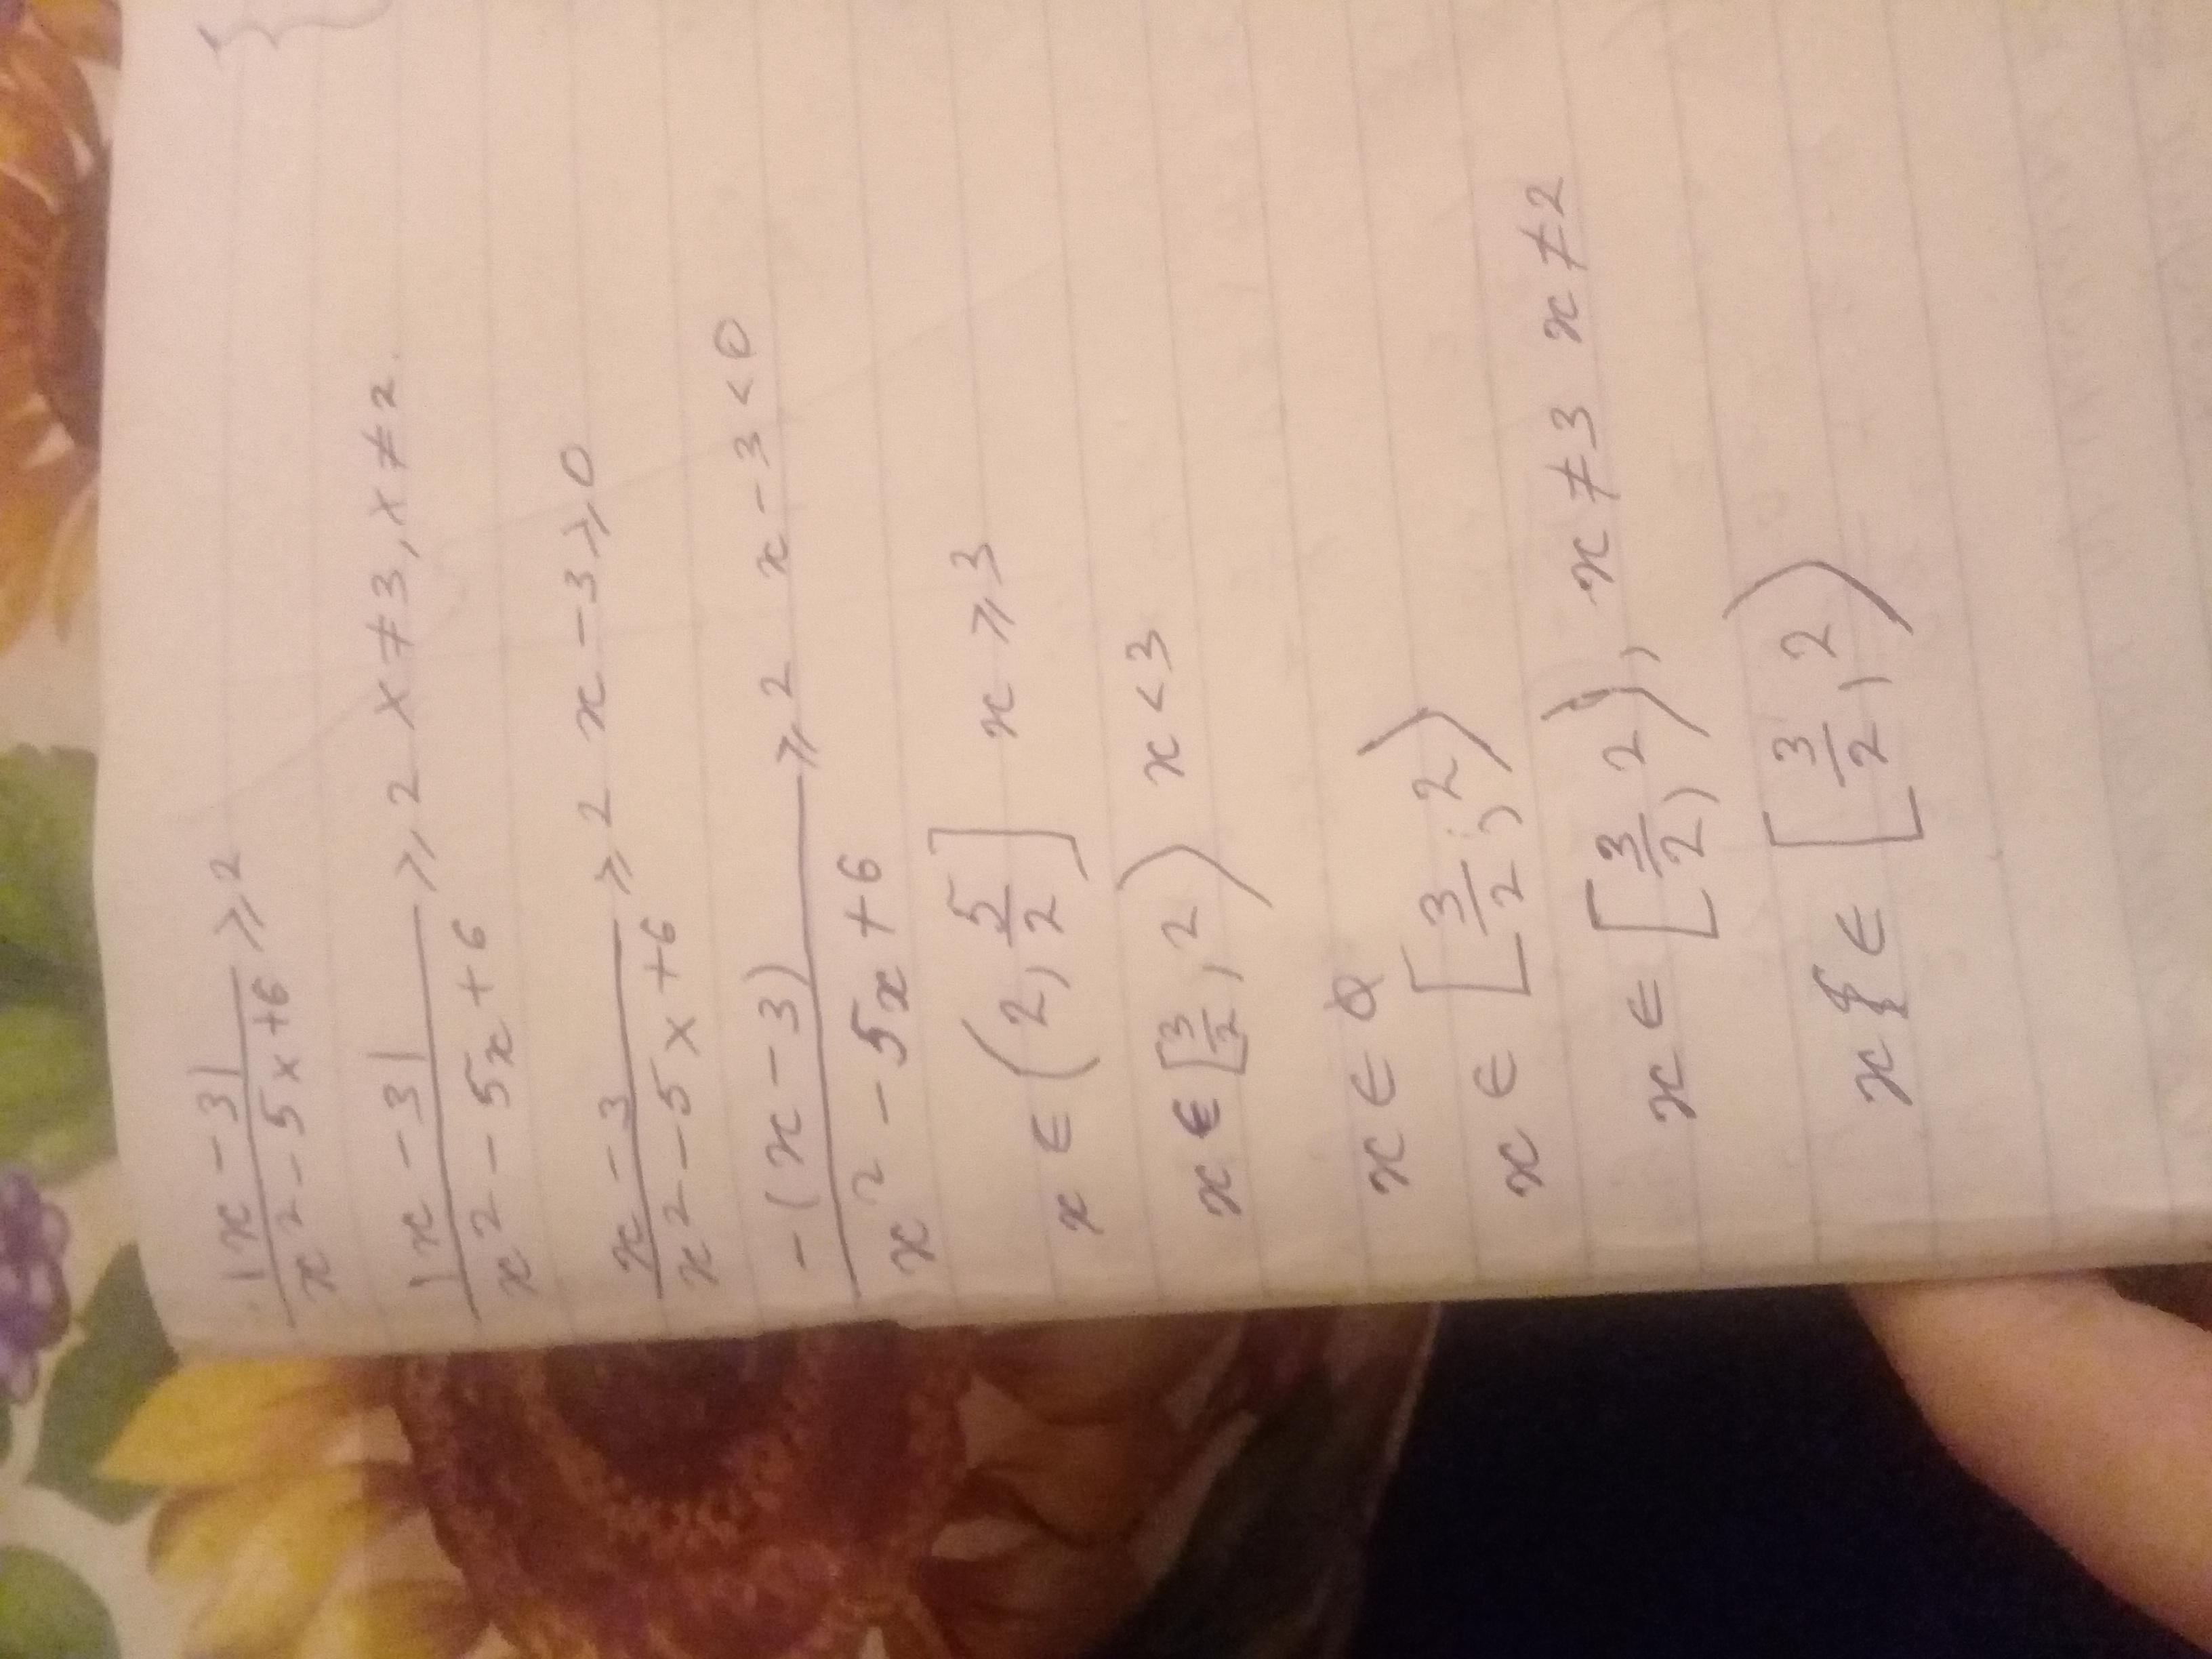 |x-3|/x²-5x+6 ⩾ 2
|x-3|/x²-5x+6 ⩾ 2 x≠3, x≠2
x-3/x²-5x+6 ⩾ 2 x-3⩾0
-(x-3)/x²-5x+6 ⩾ 2 x-3<0
x ∈ (2, 5/2] x⩾3
x ∈ [3/2, 2) x<3
x ∈ Ø
x ∈ [3/2; 2)
x ∈ [3/2, 2), x≠3 x≠2
x ∈ [3/2, 2)